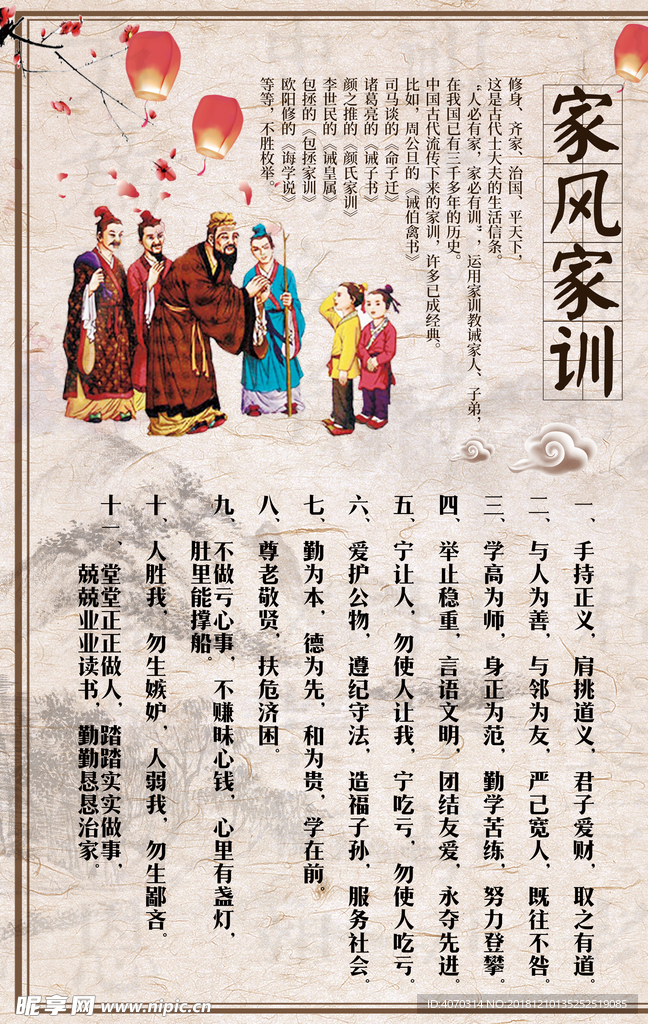 家风家训
修身、齐家、治国、平天下，
这是古代士大夫的生活信条。
“人必有家，家必有训”，运用家训教诫家人、子弟，
在我国已有三千多年的历史。
中国古代流传下来的家训，许多已成经典。
比如，周公旦的《诫伯禽书》
司马谈的《命子迁》
诸葛亮的《诫子书》
颜之推的《颜氏家训》
李世民的《诫皇属》
包拯的《包拯家训》
欧阳修的《诲学说》
等等，不胜枚举。
一、手持正义，肩挑道义，君子爱财，取之有道。
二、与人为善，与邻为友，严己宽人，既往不咎。
三、学高为师，身正为范，勤学苦练，努力登攀。
四、举止稳重，言语文明，团结友爱，永夺先进。
五、宁让人，勿使人让我，宁吃亏，勿使人吃亏。
六、爱护公物，遵纪守法，造福子孙，服务社会。
七、勤为本，德为先，和为贵，学在前。
八、尊老敬贤，扶危济困。
九、不做亏心事，不赚昧心钱，心里有盏灯，
肚里能撑船。
十、人胜我，勿生嫉妒，人弱我，勿生鄙吝。
十一、堂堂正正做人，踏踏实实做事，
兢兢业业读书，勤勤恳恳治家。
昵享网 www.nipic.cn
ID:4070314 NO:20181210135252519085